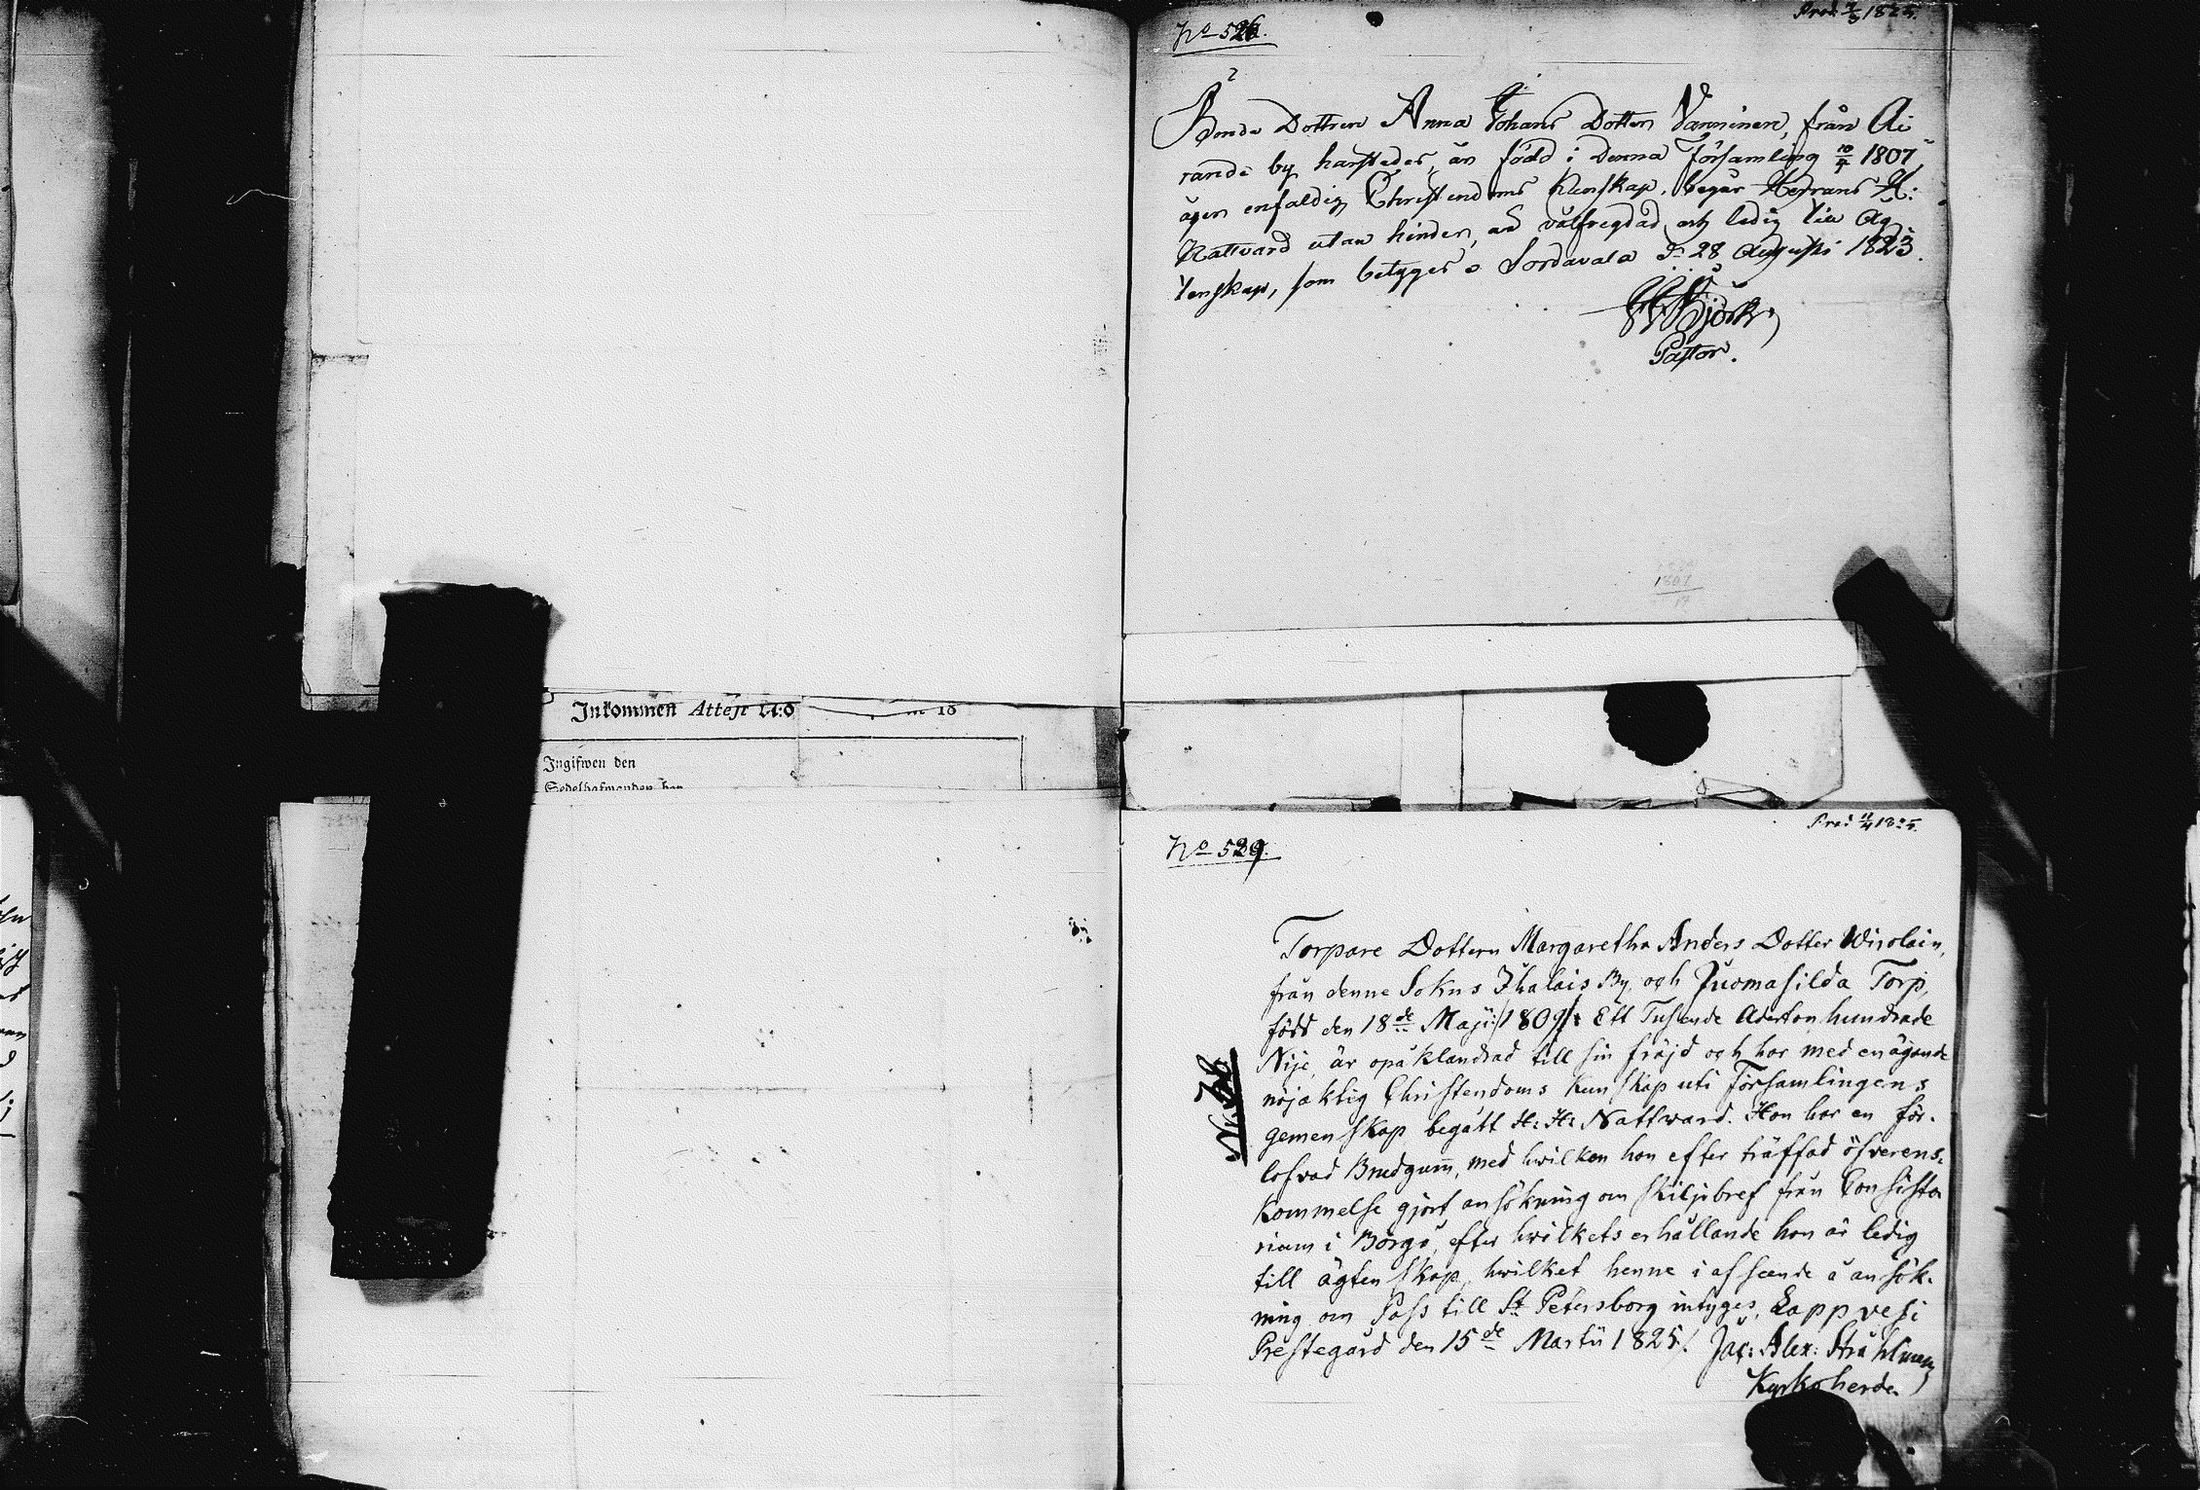 No 526.
Prod. 7/3 1825.
Bonde Dottren Anna Johans Dotter Vanninen, från Ai
rande by härstädes, är född i denna Församling 10/4 1807,
äger enfaldig Christendoms Kunskap, begår Herrans H:
Nattvard utan hinder, är välfregdad och ledig till Äg
tenskap, som betyges. Sordavala d. 28 Augusti 1823.
Björk
Pastor.
1807
Inkommen Attest N:o
18
Ingifwen den
Sedelhafwanden har
No 529.
Prod. 11/4 1825.
Torpare Dottern Margaretha Anders Dotter Wirolain,
från denne Sokns Ihalais By och Juomasilda Torp,
född den 18de Maji /1809/: Ett Tusende Aderton hundrade
Nije, är opåklandrad till sin fräjd och har med en ägande
nöjaktig Christendoms Kunskap uti Församlingens
gemenskap begått H: H: Nattward. Hon har en för-
lofvad Brudgum, med hwilken hon efter träffad öfverens-
kommelse gjort ansökning om skiljobref från Consisto
rium i Borgo, efter hwilkets erhållande hon är ledig
till ägtenskap, hwilket henne i afseende å ansök-
ning om Pass till St Petersborg intyges, Lappvesi
Prestegård den 15de Martii 1825. Jac: Alex: Stråhlman
Kyrkoherde.
Nr. 36